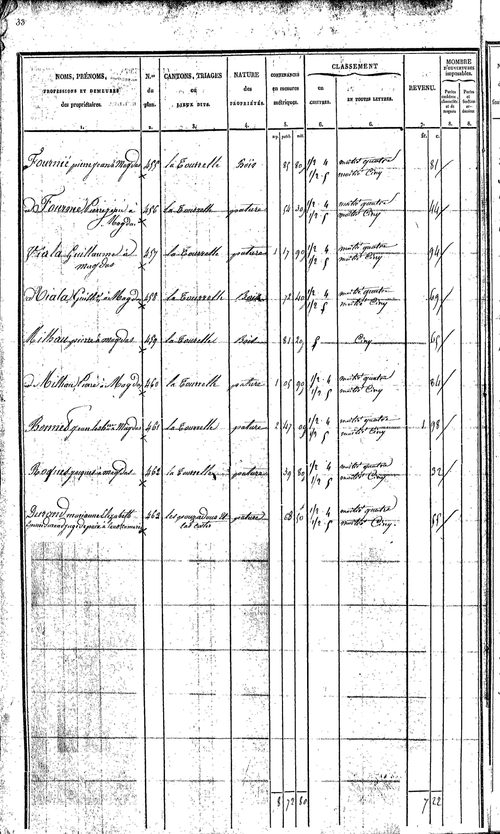 33
NOMS, PRÉNOMS,
PROFESSIONS ET DEMEURES
des propriétaires.
N.os
du
plan.
CANTONS, TRIAGES
ou
LIEUX DITS.
NATURE
des
PROPRIÉTÉS.
CONTENANCES
en mesures
métriques.
CLASSEMENT
en
CHIFFRES.
EN TOUTES LETTRES.
REVENU.
NOMBRE
D'OUVERTURES
imposables.
Portes
cochères,
charretières
et de
magasin
Portes
et
fenêtres
ordinaires
1. 2. 3. 4. 5. 6. 6. 7. 8. 8.
fr. c.
Fournié pierre jean à Magdas 455 la Tourrelle Bois 85 80 1/2 4 moitié quatre 81
1/2 5 moitié Cinq
456 la Tourrelle pature 54 30 1/2 4 moitié quatre 44
1/2 5 moitié Cinq
Viala Guillaume à 457 la Tourrelle pature 1 17 90 1/2 4 moitié quatre 94
magdas 1/2 5 moitié Cinq
d Viala Guill.e à Magdas 458 la Tourrelle Bois 72 40 1/2 4 moitié quatre 69
1/2 5 moitié Cinq
Milhau pierre à magdas 459 la Tourelle Bois 81 20 5 Cinq 65
d Milhau Pierre à Magdas 460 la Tourrelle pature 1 05 90 1/2 4 moitié quatre 84
1/2 5 moitié Cinq
461 la Tourelle pature 2 47 1/2 4 moitié quatre 1 98
1/2 5 moitié Cinq
Roques jacques à magdas 462 la Tourrelle pature 39 80 1/2 4 moitié quatre 32
1/2 5 moitié Cinq
Durand marianne Elizabeth 463 pature 68 50 1/2 4 moitié quatre 55
1/2 5 moitié Cinq.
8 72 80 7 22